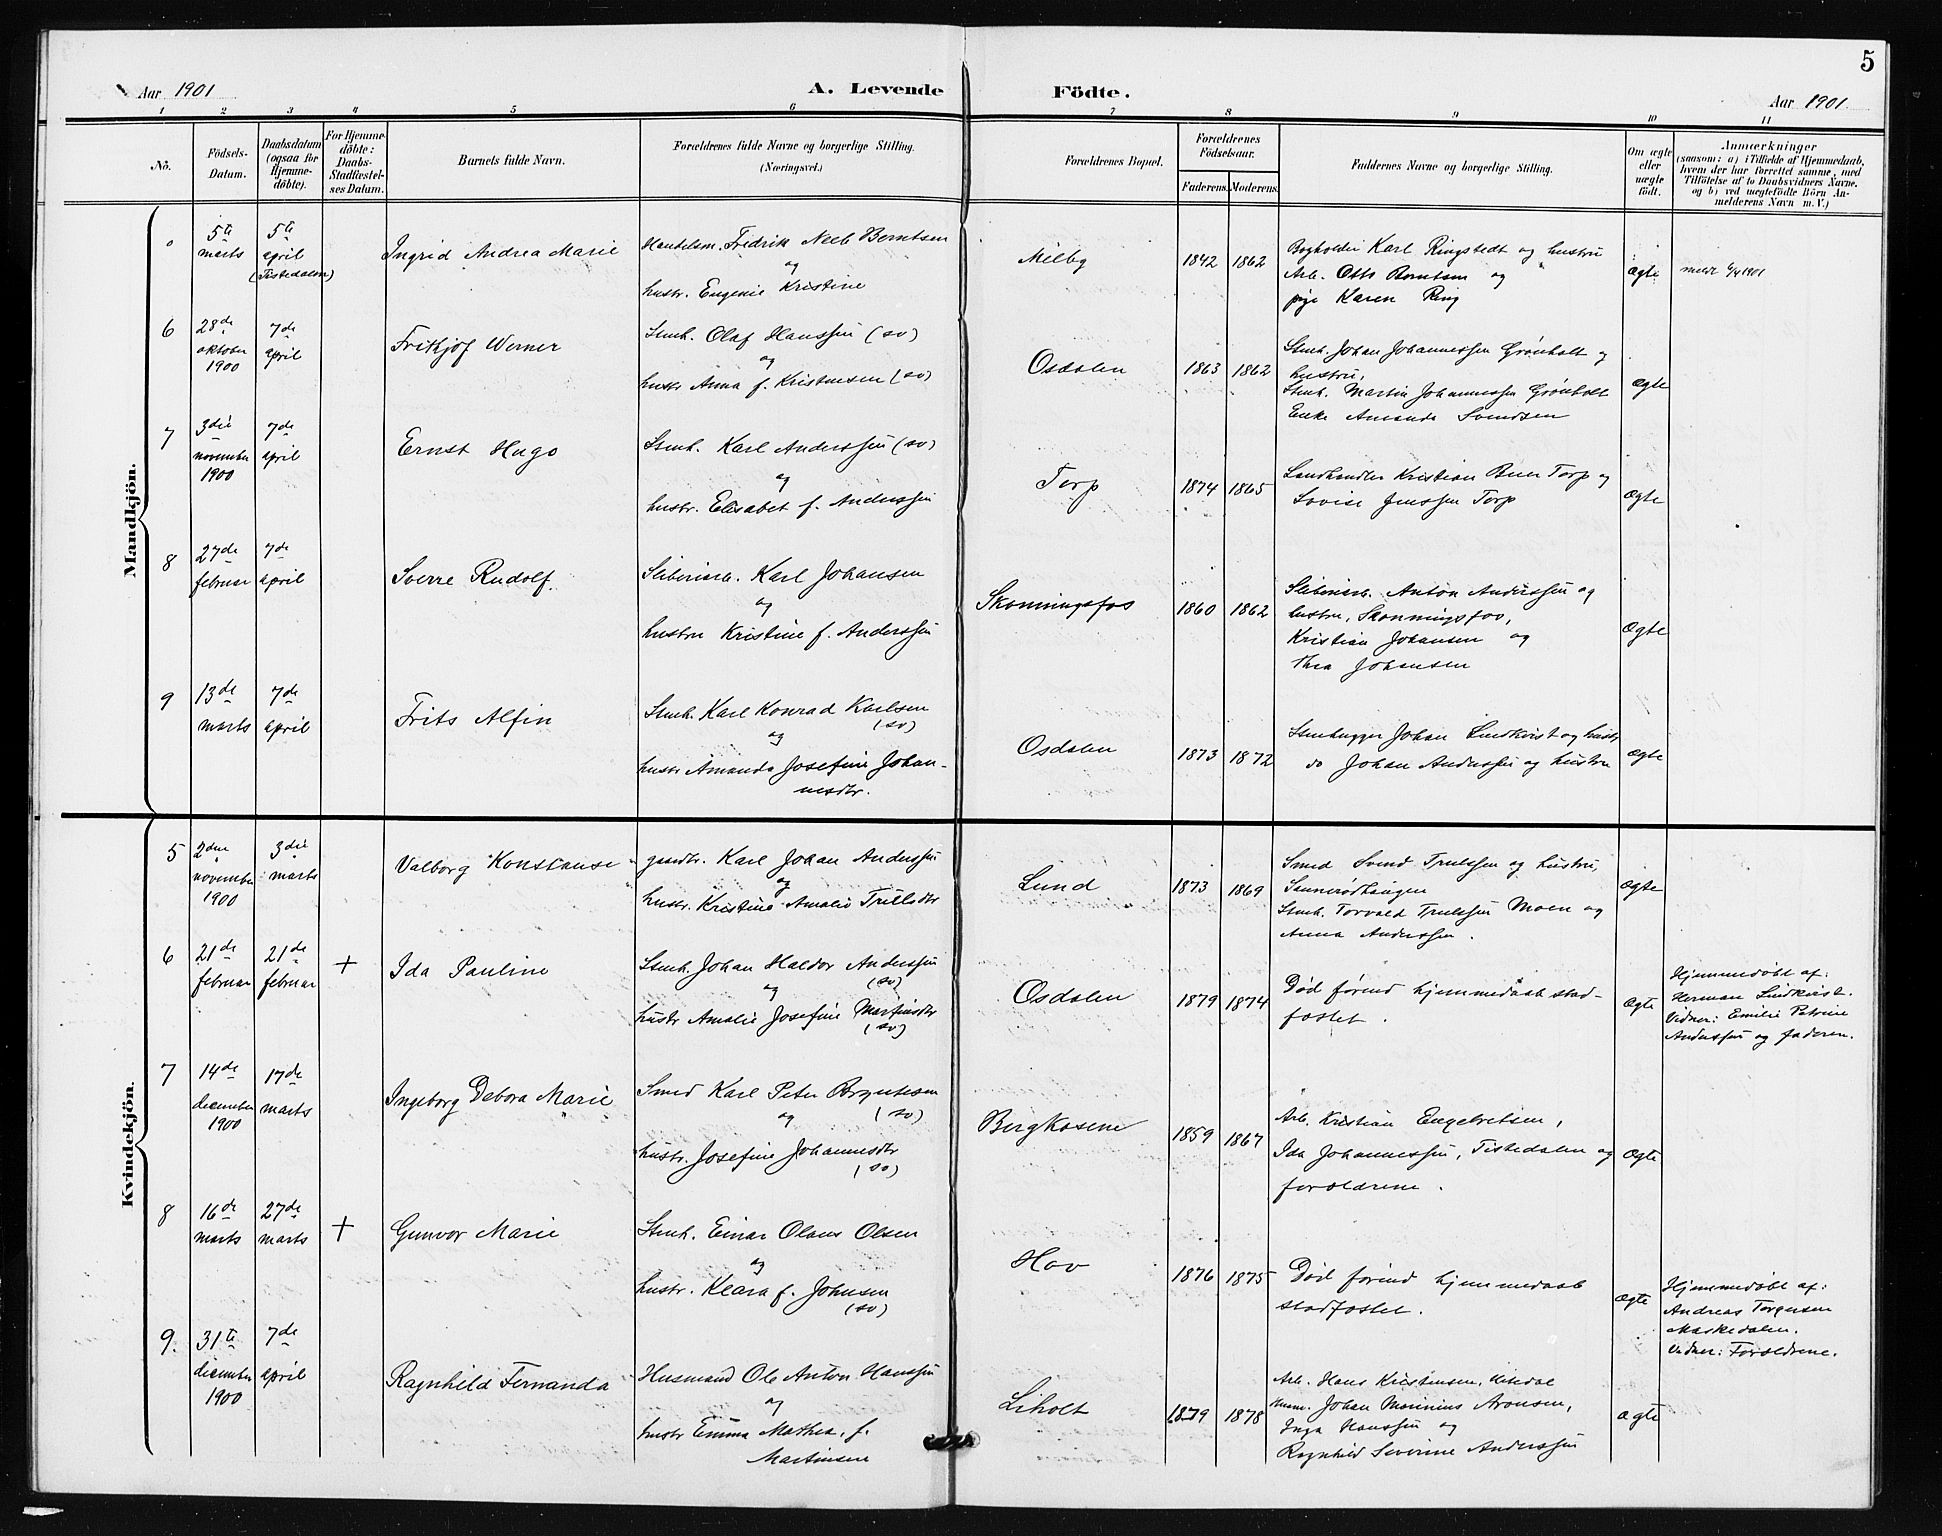 5
Aar 1901
A. Levende Födte.
Aar 1901
1 2 3 4 5 6 7 8 9 10 11
No.
Födsels-Datum.
Daabsdatum (ogsaa for Hjemme-döbte).
For Hjemme-döbte: Daabs-Stadfæstel-ses Datum.
Barnets fulde Navn.
Forældrenes fulde Navne og borgerlige Stilling. (Næringsvei.)
Forældrenes Bopæl.
Forældrenes Födselsaar.
Faderens. Moderens.
Faddernes Navne og borgerlige Stilling.
Om ægte eller uægte födt.
Anmærkninger
(saasom: a) i Tilfælde af Hjemmedaab, hvem der har forrettet samme, med Tilföielse af to Daabsvidners Navne. og b) ved uegtefödte Börn An-melderens Navn m. V.)
Mandkjön.
0 5te marts 5te april (Tistedalen) Ingrid Andrea Marie
Handelsm. Fredrik Neeb Berntsen
og
hustr. Eugenie Kristine
Milby 1842 1862
Bogholder Karl Ringstedt og hustru
Arb. Otto Berntsen og
pige Karen Ring
ægte
meldt 6/4 1901
6 28de oktober 1900 7de april Fritjof Werner
Stenh. Olaf Hanssen (sv)
og
hustr. Anna f. Kristensen (sv)
Osdalen 1863 1862
Stenh. Johan Johannessen Grønholt og
hustru,
Stenh. Martin Johannessen Grønholt
Enke Amanda Svendsen
ægte
7 3die november 1900 7de april Ernst Hugo
Stenh. Karl Anderssen (sv)
og
hustr. Elisabet f. Anderssen
Torp 1874 1865
Landhandler Kristian Buer Torp og
Lovise Jenssen Torp
ægte
8 27de februar 7de april Sverre Rudolf
Sliberiarb. Karl Johansen
og
hustru Kristine f. Anderssen
Skonningsfos 1860 1862
Sliberiarb. Anton Anderssen og
hustru, Skonningsfos,
Kristian Johansen og
Thea Johansen
Ægte
9 13de marts 7de april Frits Alfin
Stenh. Karl Konrad Karlsen
(sv)
og
hustr Amanda Josefine Johan-
nesdtr.
Osdalen 1873 1872
Stenhugger Johan Lindkvist og hustr
do Johan Anderssen og hustru
ægte
Kvindekjön.
5 2den november 1900 3die marts Valborg Konstanse
gaardbr. Karl Johan Anderssen
og
hustr. Kristine Amalie Trulsdtr
Lund 1873 1869
Smed Svend Trulssen og hustru,
Sannerødhaugen
Stenh. Torvald Trulssen Moen og
Anna Anderssen.
ægte
6 21de februar 21de februar + Ida Pauline
Stenh. Johan Haldor Anderssen
(sv)
og
hustr Amalie Josefine Martinsdtr
(sv)
Osdalen 1879 1874
Död førend hjemmedaab stad-
fæstet.
Ægte
Hjemmedøbt af:
Herman Lindkvist.
Vidner: Emilie Petrine
Anderssen og faderen.
7 14de december 1900 17de marts Ingeborg Debora Marie
Smed Karl Peter Bryntesen
(sv)
og
hustr. Josefine Johannesdtr
(sv)
Bergkasene 1859 1867
Arb. Kristian Engebretsen,
Ida Johannessen, Tistedalen og
forældrene.
Ægte
8 16de marts 27de marts + Gunvor Marie
Stenh. Einar Olaus Olsen
og
hustr. Klara f. Johnsen
(sv)
Hov 1876 1875
Död førend hjemmedaab
stadfæstet.
ægte
Hjemmedøbt af:
Andreas Torgersen
Maskedalen.
Vidner: Forældrene.
9. 31te december 1900 7de april Ragnhild Fernanda
Husmand Ole Anton Hanssen
og
hustr Emma Mathea, f.
Martinsen
Liholt 1879 1878
Arb. Hans Kristensen,
Husm. Johan Marinius Aronsen,
Inga Hanssen og
Ragnhild Severine Anderssen
ægte